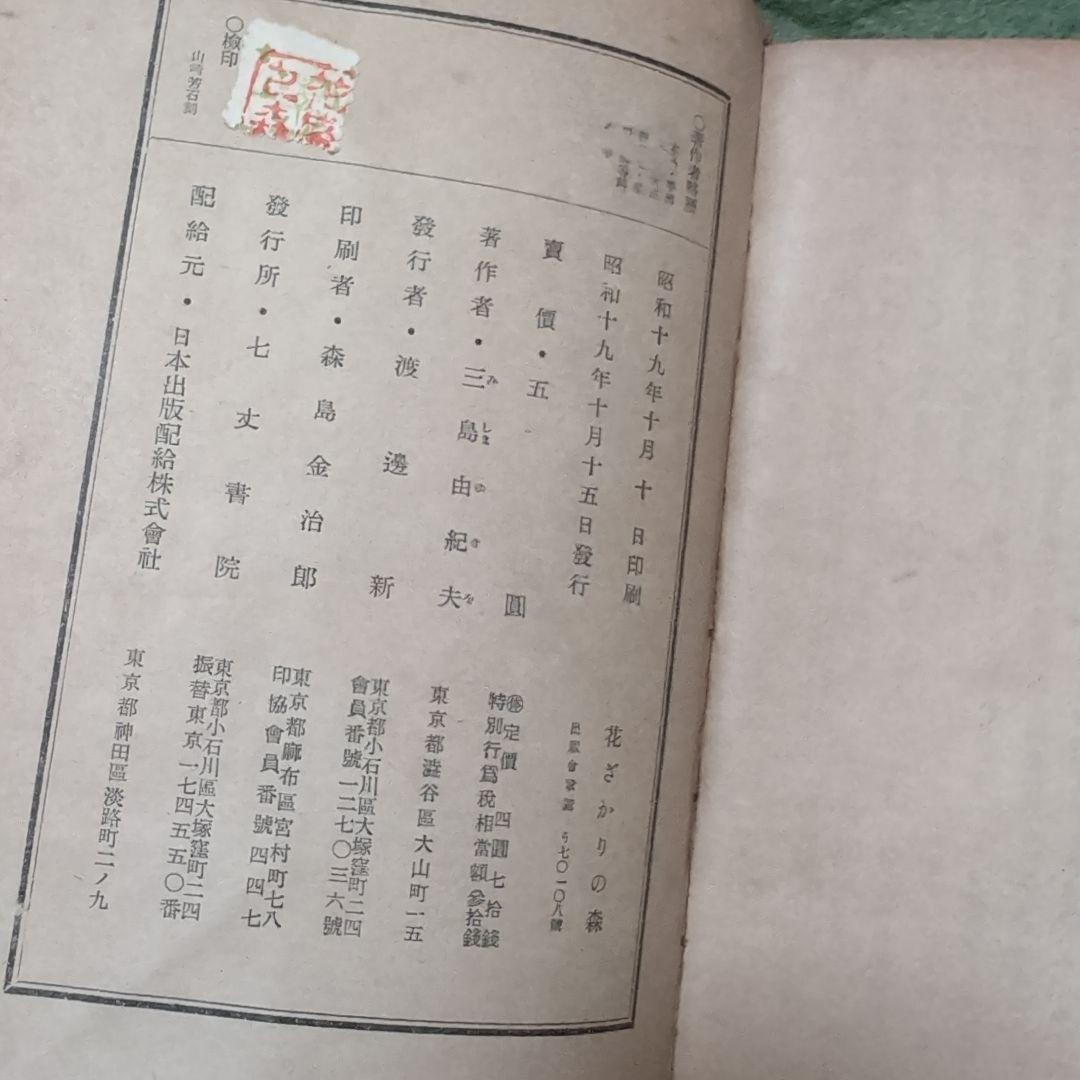 ○著作者略歷
○檢印
山崎芳石刻
昭和十九年十月十日印刷
昭和十九年十月十五日發行
花ざかりの森
ら七〇一〇八號
賣價・五圓
定價 四圓七拾錢
特別行爲稅相當額參拾錢
著作者・三島由紀夫
み しま ゆ き を
東京都澁谷區大山町一五
發行者・渡邊新
東京都小石川區大塚窪町二四
會員番號一二七〇三六號
印刷者・森島金治郎
東京都麻布區宮村町七八
印協會員番號四四七
發行所・七丈書院
東京都小石川區大塚窪町二四
振替東京一七四五五〇番
配給元・日本出版配給株式會社
東京都神田區淡路町二ノ九